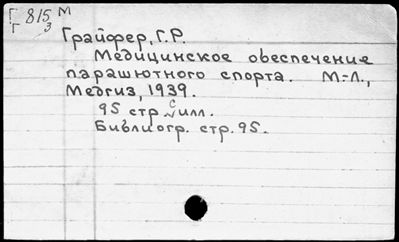 Г 815 М
Г 3
Грайфер, Г.Р.
Медицинское обеспечение
парашютного спорта. М.-Л.,
Медгиз, 1939.
95 стр. с илл.
Библиогр. стр. 95.